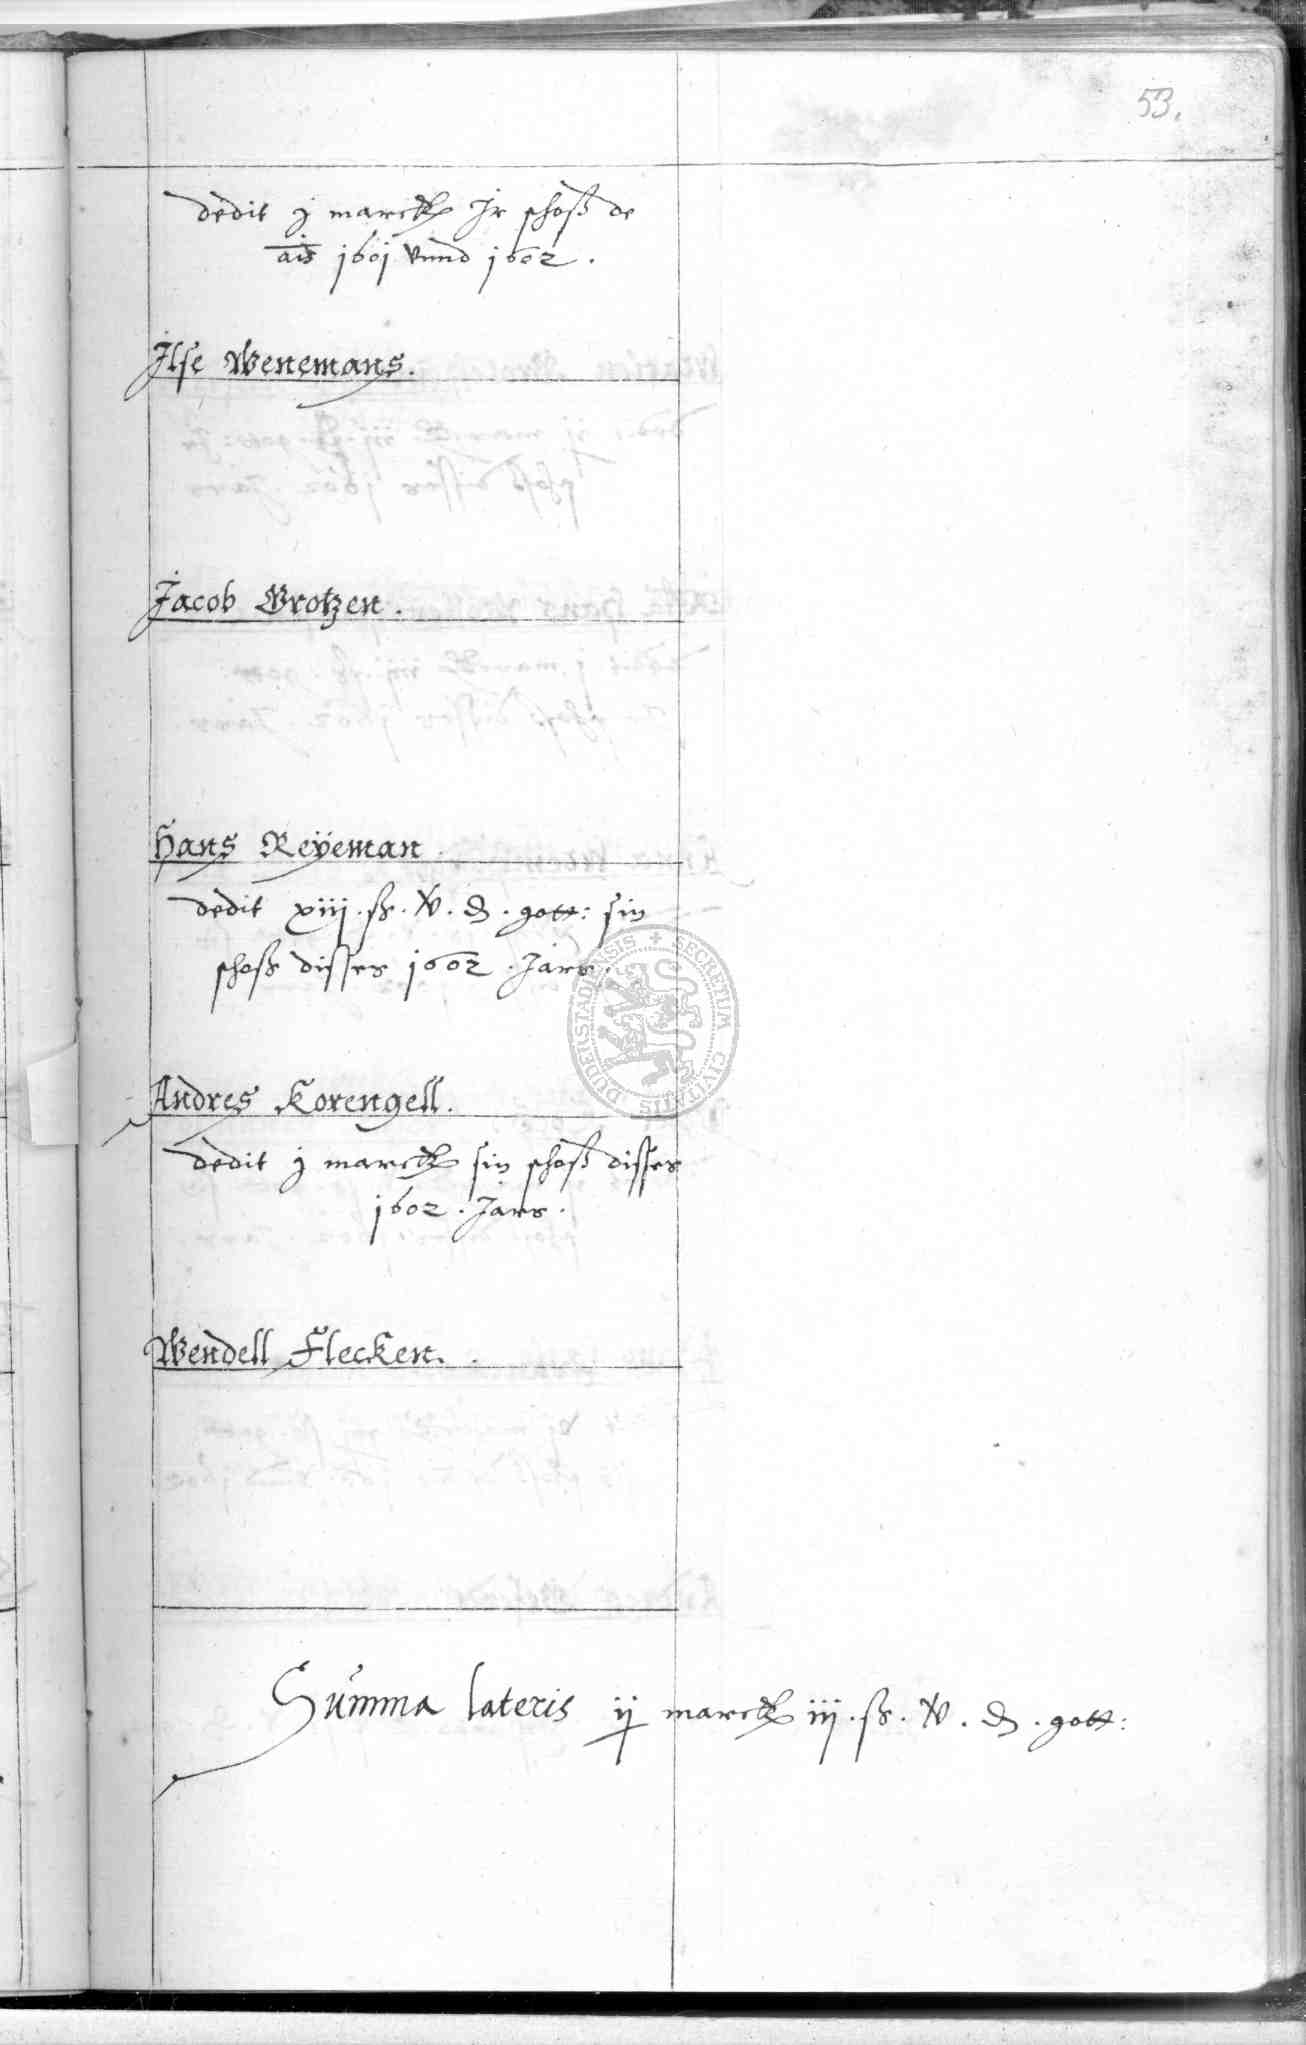 53.
dedit j marck Jr schoß de
ais 1601 vnnd 1602.
Ilse Wenemans.
Jacob Grotzen.
Hans Reÿeman.
dedit xiij. ß. v. d. gott: sin
schoß disses 1602. Jars.
DUDERSTADIENSIS + SECRETUM CIVITATIS
Andres Korengell.
dedit j marck sin schoß disses
1602. Jars.
Wendell Flecken.
Summa lateris ij marck iij. ß. v. d. gott: